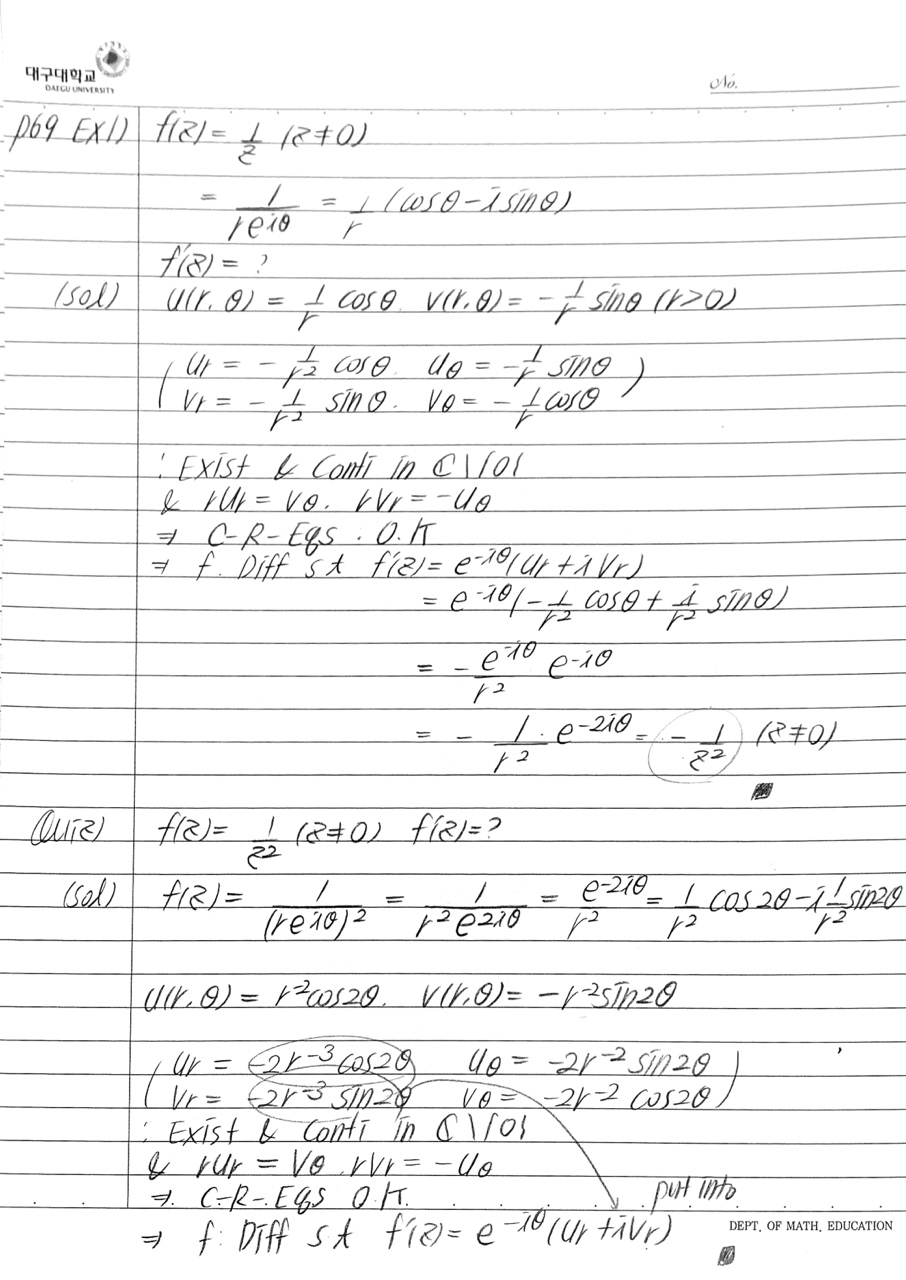 대구대학교
DAEGU UNIVERSITY
No.
p69 EX1) f(z) = 1/z (z≠0)
= 1/(re^{iθ}) = 1/r (cosθ - i sinθ)
f'(z) = ?
(sol) u(r, θ) = 1/r cosθ. v(r, θ) = - 1/r sinθ (r>0)
( Ur = - 1/r² cosθ. Uθ = - 1/r sinθ
Vr = - 1/r² sinθ. Vθ = - 1/r cosθ )
: Exist & Conti in ℂ\{0}
& rUr = Vθ. rVr = -Uθ
⇒ C-R-Eqs : O.K
⇒ f: Diff s.t f'(z) = e^{-iθ}(Ur + iVr)
= e^{-iθ}(- 1/r² cosθ + i/r² sinθ)
= - e^{-iθ}/r² e^{-iθ}
= - 1/r² · e^{-2iθ} = - 1/z² (z≠0)
Quiz) f(z) = 1/z² (z≠0) f'(z) = ?
(sol) f(z) = 1/(re^{iθ})² = 1/(r²e^{2iθ}) = e^{-2iθ}/r² = 1/r² cos2θ - i 1/r² sin2θ
U(r, θ) = r²cos2θ. V(r, θ) = -r^{-2}sin2θ
( Ur = -2r^{-3}cos2θ Uθ = -2r^{-2}sin2θ
Vr = -2r^{-3}sin2θ Vθ = -2r^{-2}cos2θ )
: Exist & Conti in ℂ\{0}
& rUr = Vθ. rVr = -Uθ
⇒ C-R-Eqs O.K.
put into
⇒ f: Diff s.t f'(z) = e^{-iθ}(Ur + iVr)
DEPT. OF MATH. EDUCATION